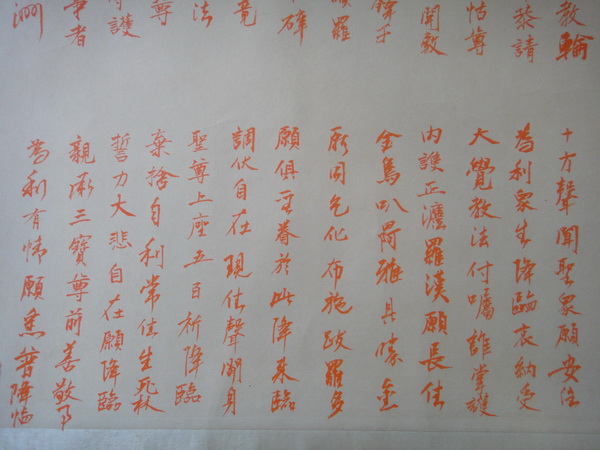 教輪
恭請
怙尊
開敷
子
羅
竟
尊
法
護
尊者
洲
十方聲聞聖眾願安住
為利眾生降臨哀納受
大覺教法付囑誰掌護
內護正灋羅漢願長住
金烏叭荷雅具
同乞化布施跋羅多
願俱聖眷於此降來臨
調伏自在現住聲湖身
聖尊上座五百祈降臨
棄捨自利常住生死林
誓力大悲自在願降臨
親承三寶尊前善敬事
為利有情願悉普降臨